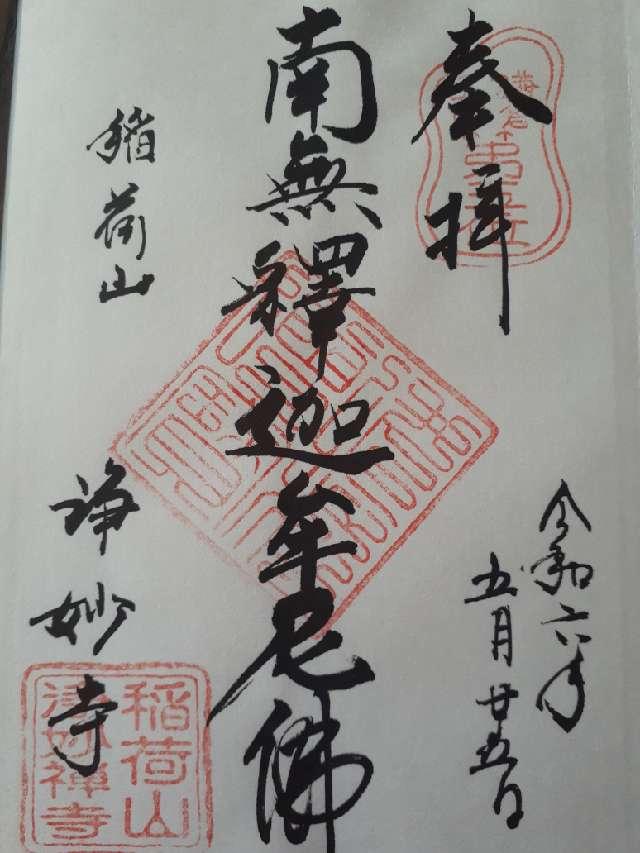 奉拝
令和六年
五月廿五日
南無釋迦牟尼佛
稲荷山
浄妙寺
稲荷山
浄妙禅寺